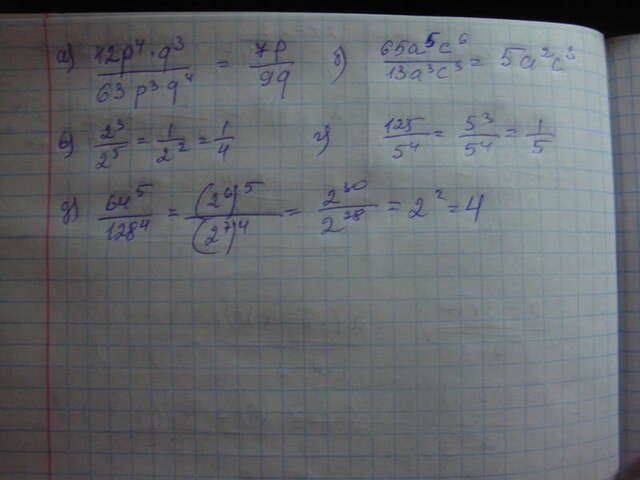 а) 42p⁴·q³/63p³q⁴ = 7p/9q б) 65a⁵c⁶/13a³c³ = 5a²c³
в) 2³/2⁵ = 1/2² = 1/4 г) 125/5⁴ = 5³/5⁴ = 1/5
д) 64⁵/128⁴ = (2⁶)⁵/(2⁷)⁴ = 2³⁰/2²⁸ = 2² = 4